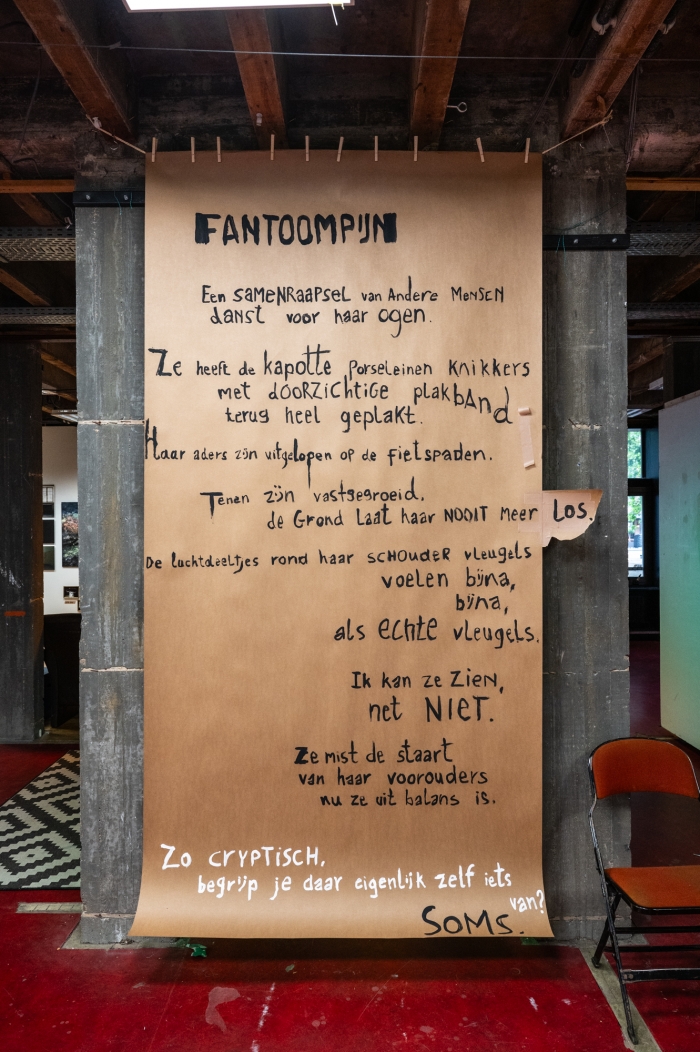 FANTOOMPIJN
Een SAMENRAAPSEL van Andere MENSEN
danst voor haar ogen.
Ze heeft de kapotte Porseleinen Knikkers
met dOORZICHTIGE plakbAnd
terug heel geplakt.
Haar aders zijn uitgelopen op de fietspaden.
Tenen zijn vastgegroeid.
de Grond Laat haar NOOIT Meer Los.
De luchtdeeltjes rond haar SCHOUDER vleugels
voelen bijna,
bijna,
als echte vleugels.
Ik kan ze Zien,
net NIET.
Ze mist de staart
van haar voorouders
nu ze uit balans is.
Zo CRYPTISCH,
begrijp je daar eigenlijk zelf iets
van?
SOMS.